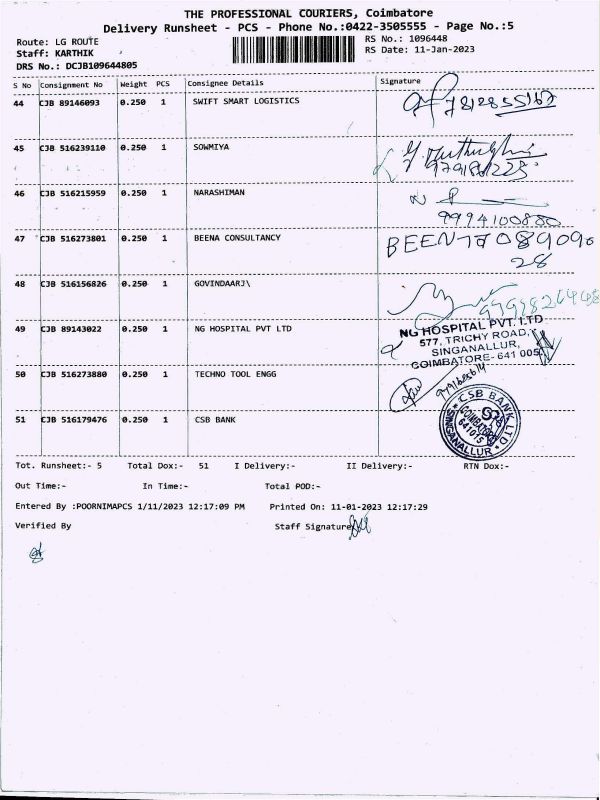 THE PROFESSIONAL COURIERS, Coimbatore
Delivery Runsheet - PCS - Phone No.:0422-3505555 - Page No.:5
Route: LG ROUTE
RS No.: 1096448
Staff: KARTHIK
RS Date: 11-Jan-2023
DRS No.: DCJB109644805
S No Consignment No Weight PCS Consignee Details Signature
44 CJB 89146093 0.250 1 SWIFT SMART LOGISTICS
45 CJB 516239110 0.250 1 SOWMIYA
46 CJB 516215959 0.250 1 NARASHIMAN
9994100880
47 CJB 516273801 0.250 1 BEENA CONSULTANCY
48 CJB 516156826 0.250 1 GOVINDAARJ\
49 CJB 89143022 0.250 1 NG HOSPITAL PVT LTD
NG HOSPITAL PVT. LTD
577, TRICHY ROAD,
SINGANALLUR,
COIMBATORE- 641 005.
50 CJB 516273880 0.250 1 TECHNO TOOL ENGG
51 CJB 516179476 0.250 1 CSB BANK
CSB BANK LTD
COIMBATORE
641015
SINGANALLUR
Tot. Runsheet:- 5 Total Dox:- 51 I Delivery:- II Delivery:- RTN Dox:-
Out Time:- In Time:- Total POD:-
Entered By :POORNIMAPCS 1/11/2023 12:17:09 PM Printed On: 11-01-2023 12:17:29
Verified By Staff Signature